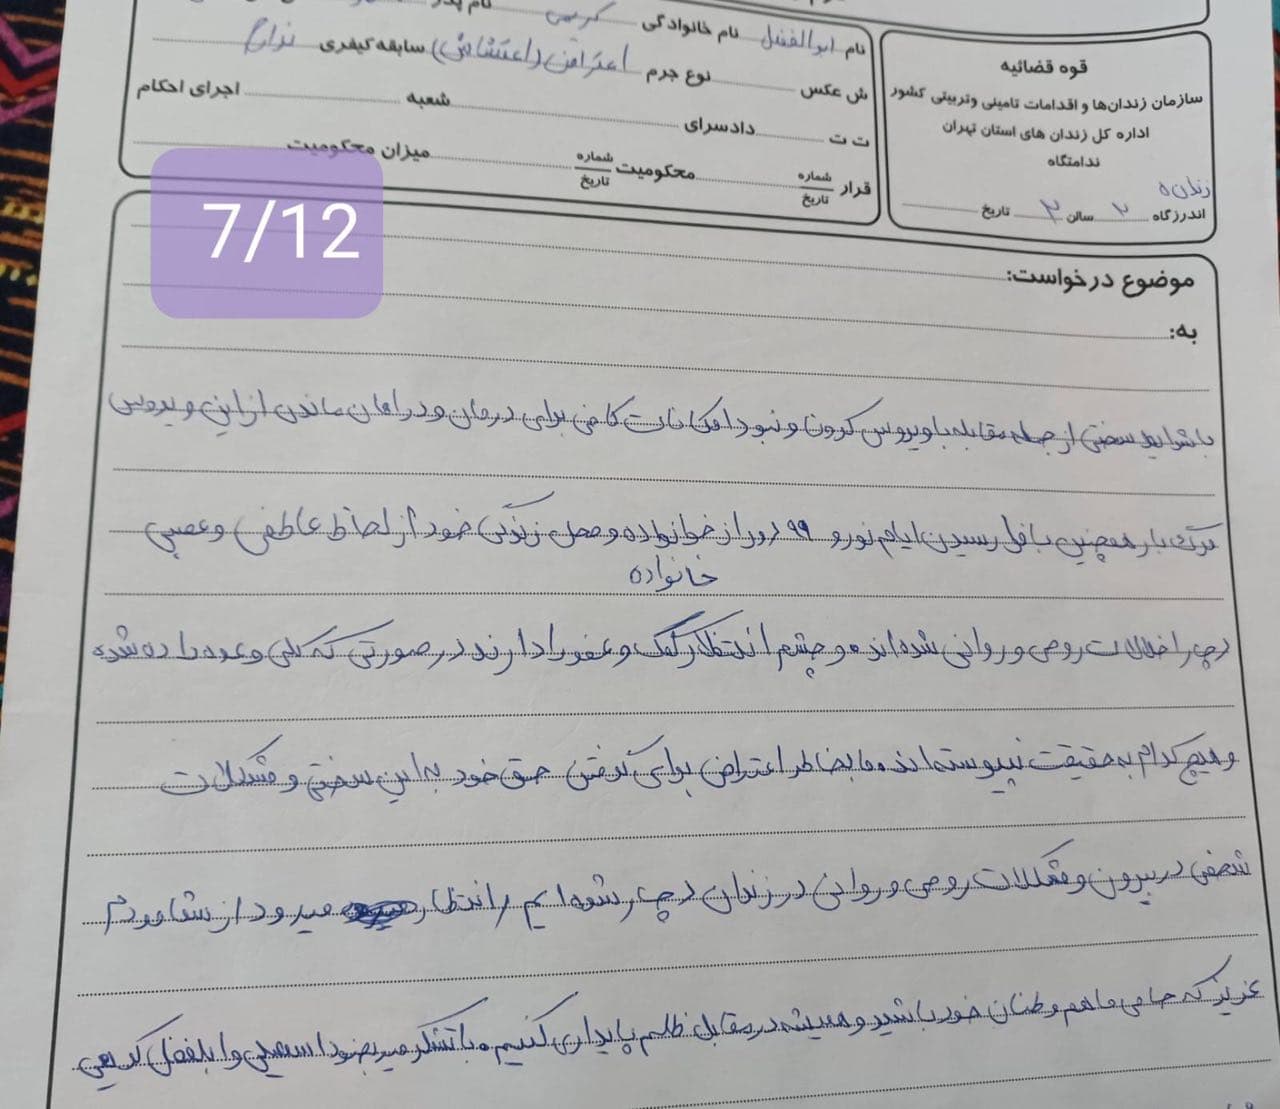 نام ابوالفضل نام خانوادگی کریمی نام پدر
ش عکس نوع جرم اعتراض (اغتشاش) سابقه کیفری ندارم
ت ت دادسرای شعبه اجرای احکام
قرار شماره تاریخ محکومیت شماره تاریخ میزان محکومیت
قوه قضائیه
سازمان زندان‌ها و اقدامات تامینی وتربیتی کشور
اداره کل زندان های استان تهران
ندامتگاه
زندان
اندرزگاه ۲ سالن ۳ تاریخ
7/12
موضوع درخواست:
به:
با شرایط سختی از جمله مقابله با ویروس کرونا و نبود امکانات کافی برای درمان و در امان ماندن از این ویروس
مرگ بار همچنین با فرا رسیدن ایام نوروز ۹۹ دور از خانواده و محل زندگی خود از لحاظ عاطفی و عصبی
خانواده
دچار اختلالات روحی و روانی شده‌اند و چشم انتظار کمک و عفو را دارند در صورتی که کلی وعده داده شده
و هیچ کدام به حقیقت نپیوسته‌اند ما بخاطر اعتراض برای گرفتن حق خود به این سختی و مشکلات
شخصی در بیرون و مشکلات روحی و روانی در زندان دچار شده ایم انتظار میرود از شما مردم
عزیز که حامی ما هم وطنان خود باشید و همیشه در مقابل ظلم پایداری کنیم باتشکر ابلفضل کریمی